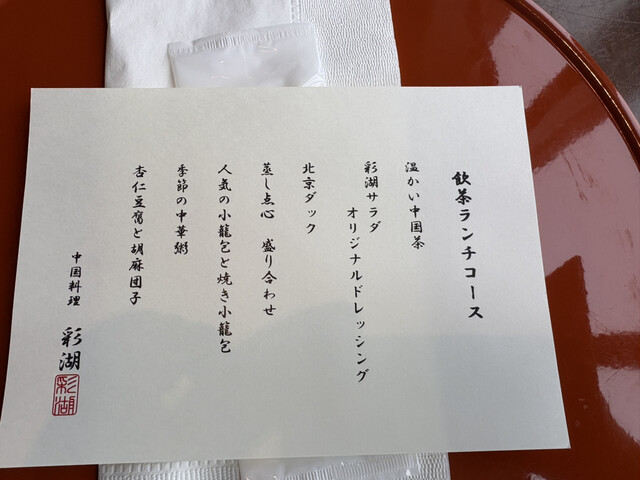 飲茶ランチコース
温かい中国茶
彩湖サラダ
オリジナルドレッシング
北京ダック
蒸し点心　盛り合わせ
人気の小籠包と焼き小籠包
季節の中華粥
杏仁豆腐と胡麻団子
中国料理　彩湖
彩湖